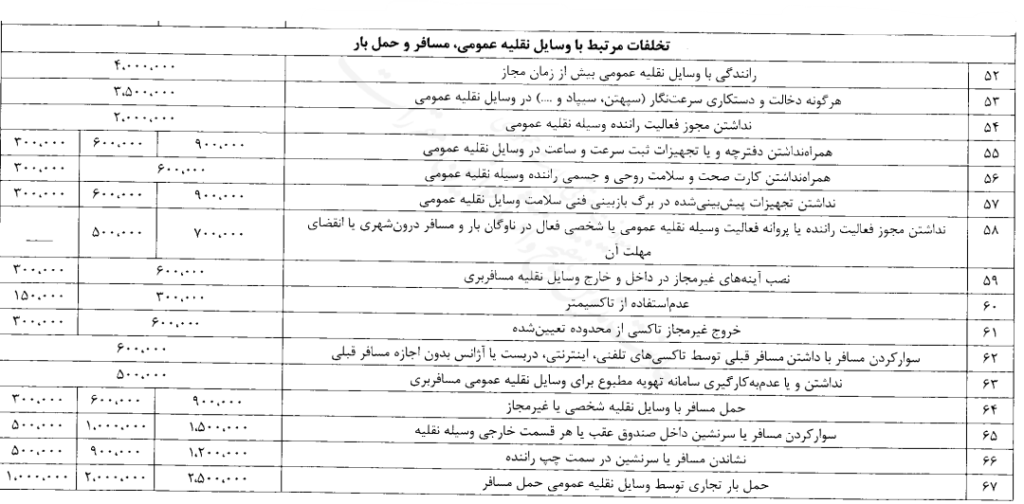 تخلفات مرتبط با وسایل نقلیه عمومی، مسافر و حمل بار
۵۲ رانندگی با وسایل نقلیه عمومی بیش از زمان مجاز ۴،۰۰۰،۰۰۰
۵۳ هرگونه دخالت و دستکاری سرعت‌نگار (سپهتن، سیپاد و ....) در وسایل نقلیه عمومی ۳،۵۰۰،۰۰۰
۵۴ نداشتن مجوز فعالیت راننده وسیله نقلیه عمومی ۲،۰۰۰،۰۰۰
۵۵ همراه‌نداشتن دفترچه و یا تجهیزات ثبت سرعت و ساعت در وسایل نقلیه عمومی ۹۰۰،۰۰۰ ۶۰۰،۰۰۰ ۳۰۰،۰۰۰
۵۶ همراه‌نداشتن کارت صحت و سلامت روحی و جسمی راننده وسیله نقلیه عمومی ۶۰۰،۰۰۰ ۳۰۰،۰۰۰
۵۷ نداشتن تجهیزات پیش‌بینی‌شده در برگ بازبینی فنی سلامت وسایل نقلیه عمومی ۹۰۰،۰۰۰ ۶۰۰،۰۰۰ ۳۰۰،۰۰۰
۵۸ نداشتن مجوز فعالیت راننده یا پروانه فعالیت وسیله نقلیه عمومی یا شخصی فعال در ناوگان بار و مسافر درون‌شهری یا انقضای ۷۰۰،۰۰۰ ۵۰۰،۰۰۰ ___
مهلت آن
۵۹ نصب آینه‌های غیرمجاز در داخل و خارج وسایل نقلیه مسافربری ۶۰۰،۰۰۰ ۳۰۰،۰۰۰
۶۰ عدم‌استفاده از تاکسیمتر ۳۰۰،۰۰۰ ۱۵۰،۰۰۰
۶۱ خروج غیرمجاز تاکسی از محدوده تعیین‌شده ۶۰۰،۰۰۰ ۳۰۰،۰۰۰
۶۲ سوارکردن مسافر با داشتن مسافر قبلی توسط تاکسی‌های تلفنی، اینترنتی، دربست یا آژانس بدون اجازه مسافر قبلی ۶۰۰،۰۰۰
۶۳ نداشتن و یا عدم‌به‌کارگیری سامانه تهویه مطبوع برای وسایل نقلیه عمومی مسافربری ۵۰۰،۰۰۰
۶۴ حمل مسافر با وسایل نقلیه شخصی یا غیرمجاز ۹۰۰،۰۰۰ ۶۰۰،۰۰۰ ۳۰۰،۰۰۰
۶۵ سوارکردن مسافر یا سرنشین داخل صندوق عقب یا هر قسمت خارجی وسیله نقلیه ۱،۵۰۰،۰۰۰ ۱،۰۰۰،۰۰۰ ۵۰۰،۰۰۰
۶۶ نشاندن مسافر یا سرنشین در سمت چپ راننده ۱،۲۰۰،۰۰۰ ۹۰۰،۰۰۰ ۵۰۰،۰۰۰
۶۷ حمل بار تجاری توسط وسایل نقلیه عمومی حمل مسافر ۲،۵۰۰،۰۰۰ ۲،۰۰۰،۰۰۰ ۱،۰۰۰،۰۰۰